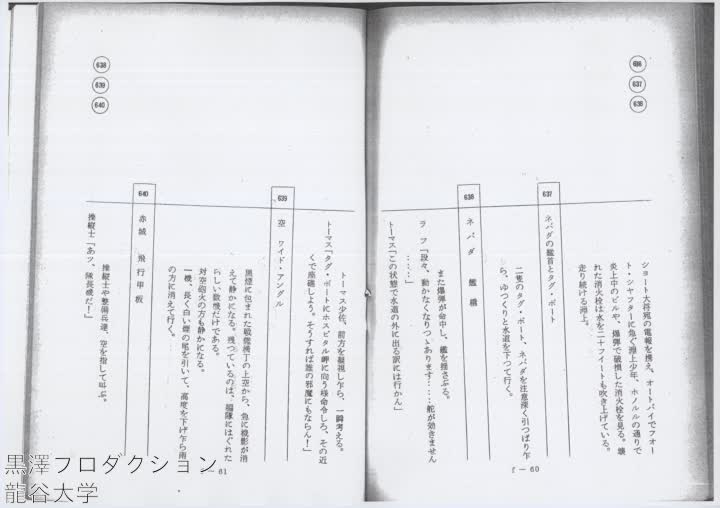 636
637
638
ショート大将宛の電報を携え、オートバイでフォー
ト・シャフターに急ぐ淵上少年、ホノルルの通りで
炎上中のビルや、爆弾で破損した消火栓を見る。壊
れた消火栓は水を二十フイートも吹き上げている。
走り続ける淵上。
637
ネバダの艦首とタグ・ボート
二隻のタグ・ボート、ネバダを注意深く引つぱり乍
ら、ゆつくりと水道を下つて行く。
638
ネバダ 艦橋
また爆弾が命中し、艦を揺さぶる。
ラフ「段々、動かなくなりつゝあります……舵が効きません
……」
トーマス「この状態で水道の外に出る訳には行かん」
f－60
638
639
640
トーマス少佐、前方を凝視し乍ら、一瞬考える。
トーマス「タグ・ボートにホスピタル岬に向う様命令しろ、その近
くで座礁しよう。そうすれば誰の邪魔にもならん！」
639
空 ワイド・アングル
黒煙に包まれた戦艦横丁の上空から、急に機影が消
えて静かになる。残つているのは、編隊にはぐれた
らしい数機だけである。
対空砲火の方も静かになる。
一機、長く白い煙の尾を引いて、高度を下げ乍ら南
の方に消えて行く。
640
赤城 飛行甲板
操縦士や整備兵達、空を指して叫ぶ。
操縦士「あツ、隊長機だ！」
61
黒澤プロダクション
龍谷大学